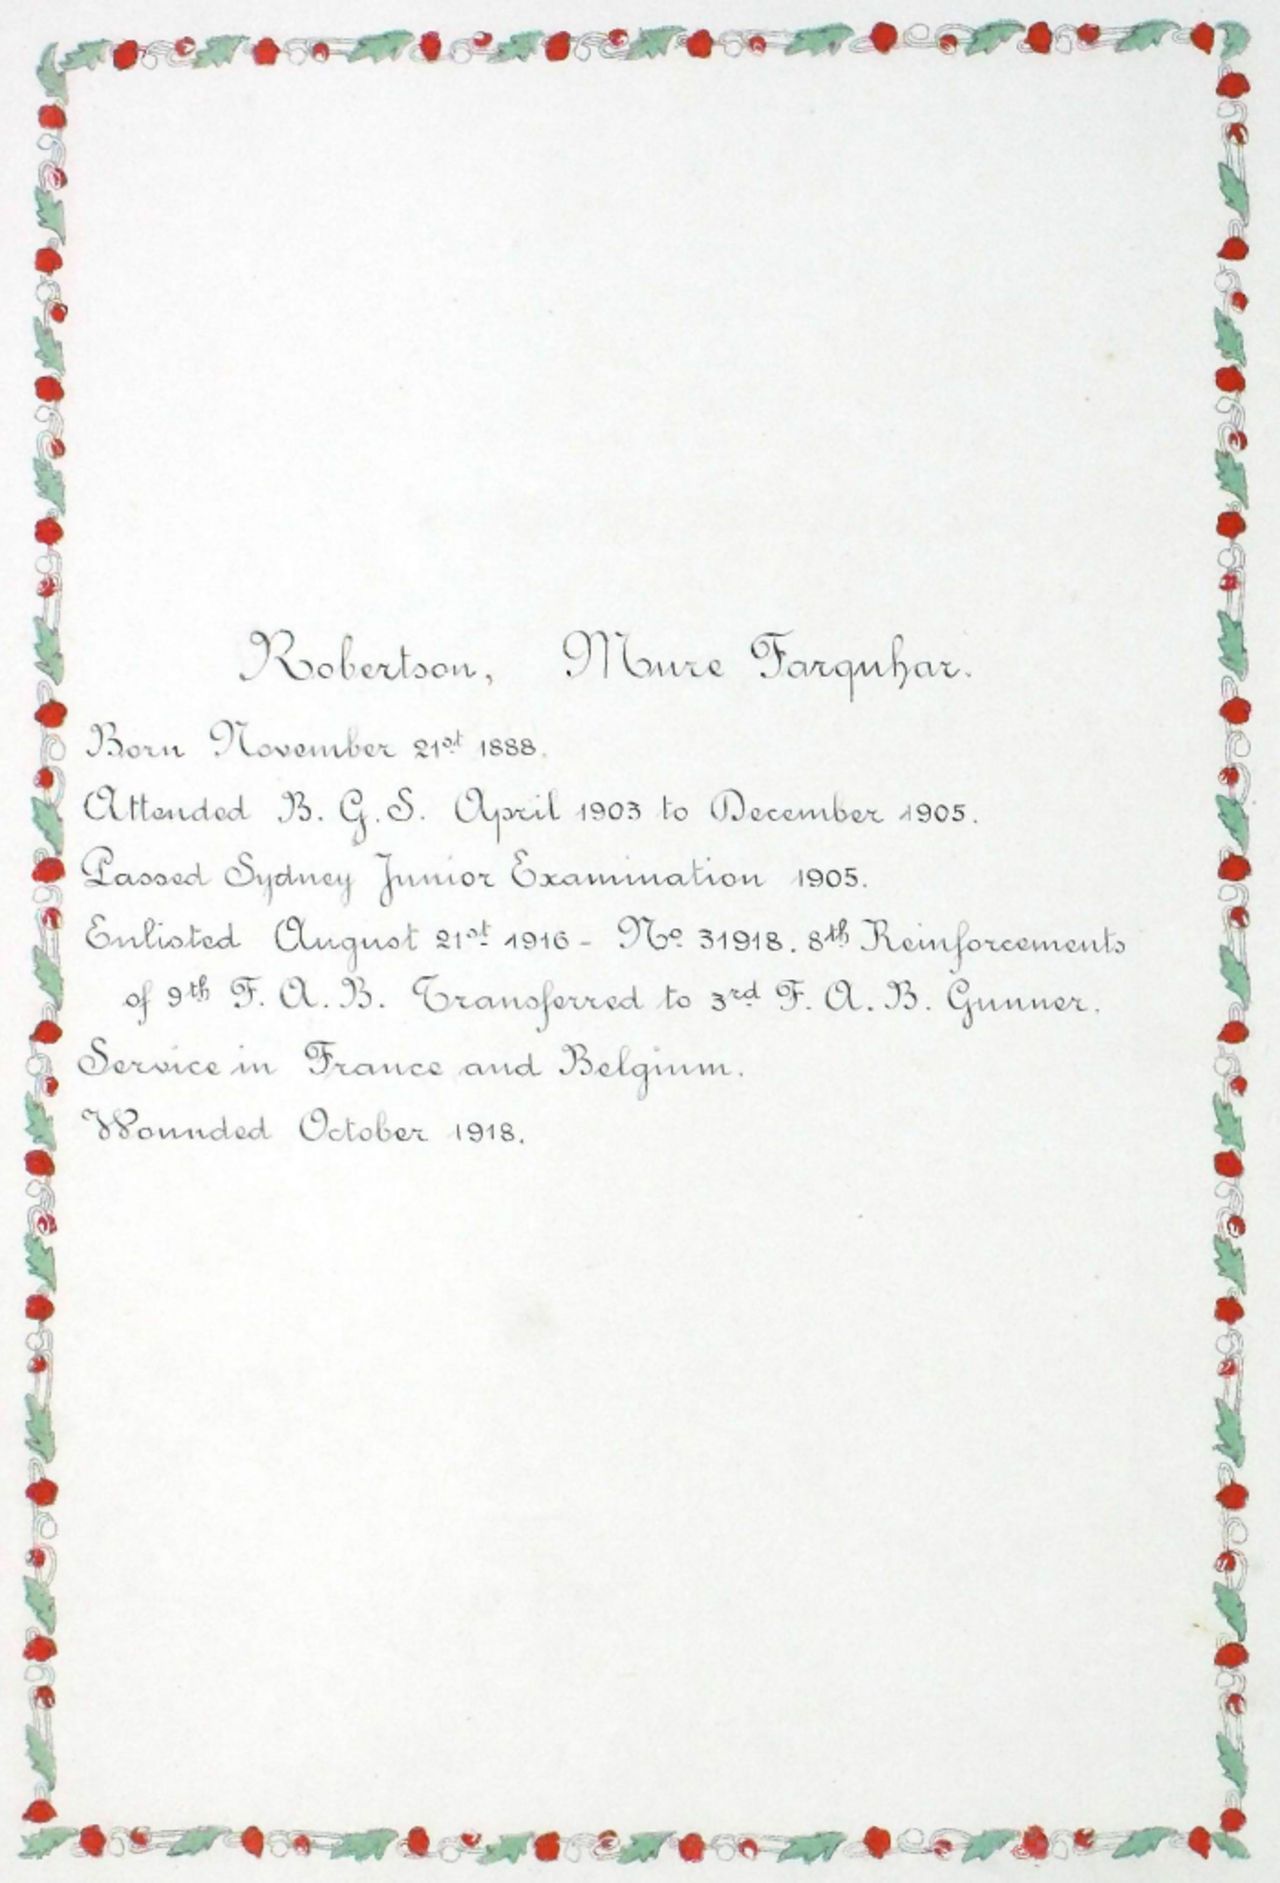 Robertson, Mure Farquhar.
Born November 21st 1888.
Attended B. G. S. April 1903 to December 1905.
Passed Sydney Junior Examination 1905.
Enlisted August 21st 1916 - No 31918. 8th Reinforcements
of 9th F. A. B. Transferred to 3rd F. A. B. Gunner.
Service in France and Belgium.
Wounded October 1918.